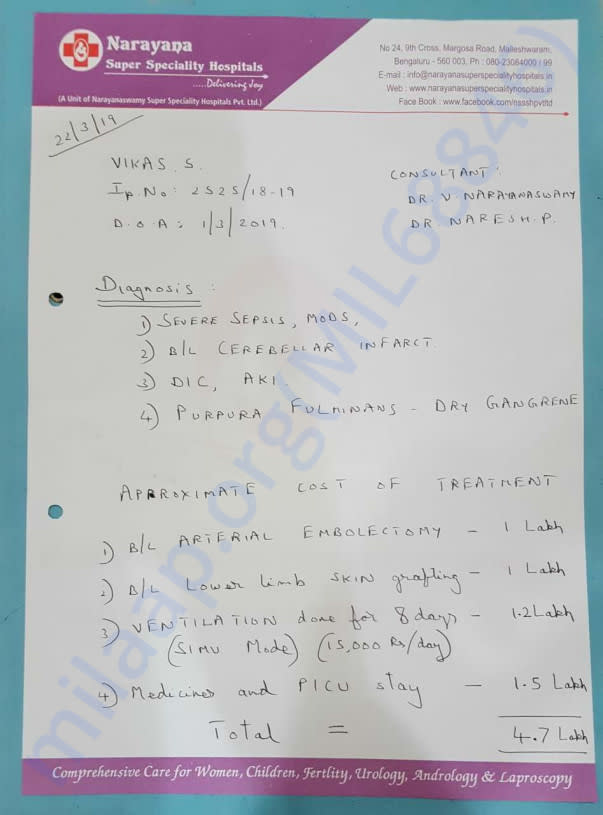 Narayana
Super Speciality Hospitals
.....Delivering Joy
(A Unit of Narayanaswamy Super Speciality Hospitals Pvt. Ltd.)
No 24, 9th Cross, Margosa Road, Malleshwaram,
Bengaluru - 560 003, Ph : 080-23084000 / 99
E-mail : info@narayanasuperspecialityhospitals.in
Web : www.narayanasuperspecialityhospitals.in
Face Book : www.facebook.com/nssshpvtltd
22/3/19
VIKAS. S.
Ip. No: 2525/18-19
D.O.A: 1/3/2019.
CONSULTANT:
DR. V. NARAYANASWAMY
DR. NARESH. P.
Diagnosis :
1) SEVERE SEPSIS, MODS,
2) B/L CEREBELLAR INFARCT.
3) DIC, AKI.
4) PURPURA FULMINANS - DRY GANGRENE
APPROXIMATE COST OF TREATMENT
1) B/L ARTERIAL EMBOLECTOMY - 1 Lakh
2) B/L Lower limb SKIN grafting - 1 Lakh
3) VENTILATION done for 8 days - 1.2 Lakh
(SIMV Mode) (15,000 Rs/day)
4) Medicines and PICU stay - 1.5 Lakh
Total = 4.7 Lakh
Comprehensive Care for Women, Children, Fertlity, Urology, Andrology & Laproscopy